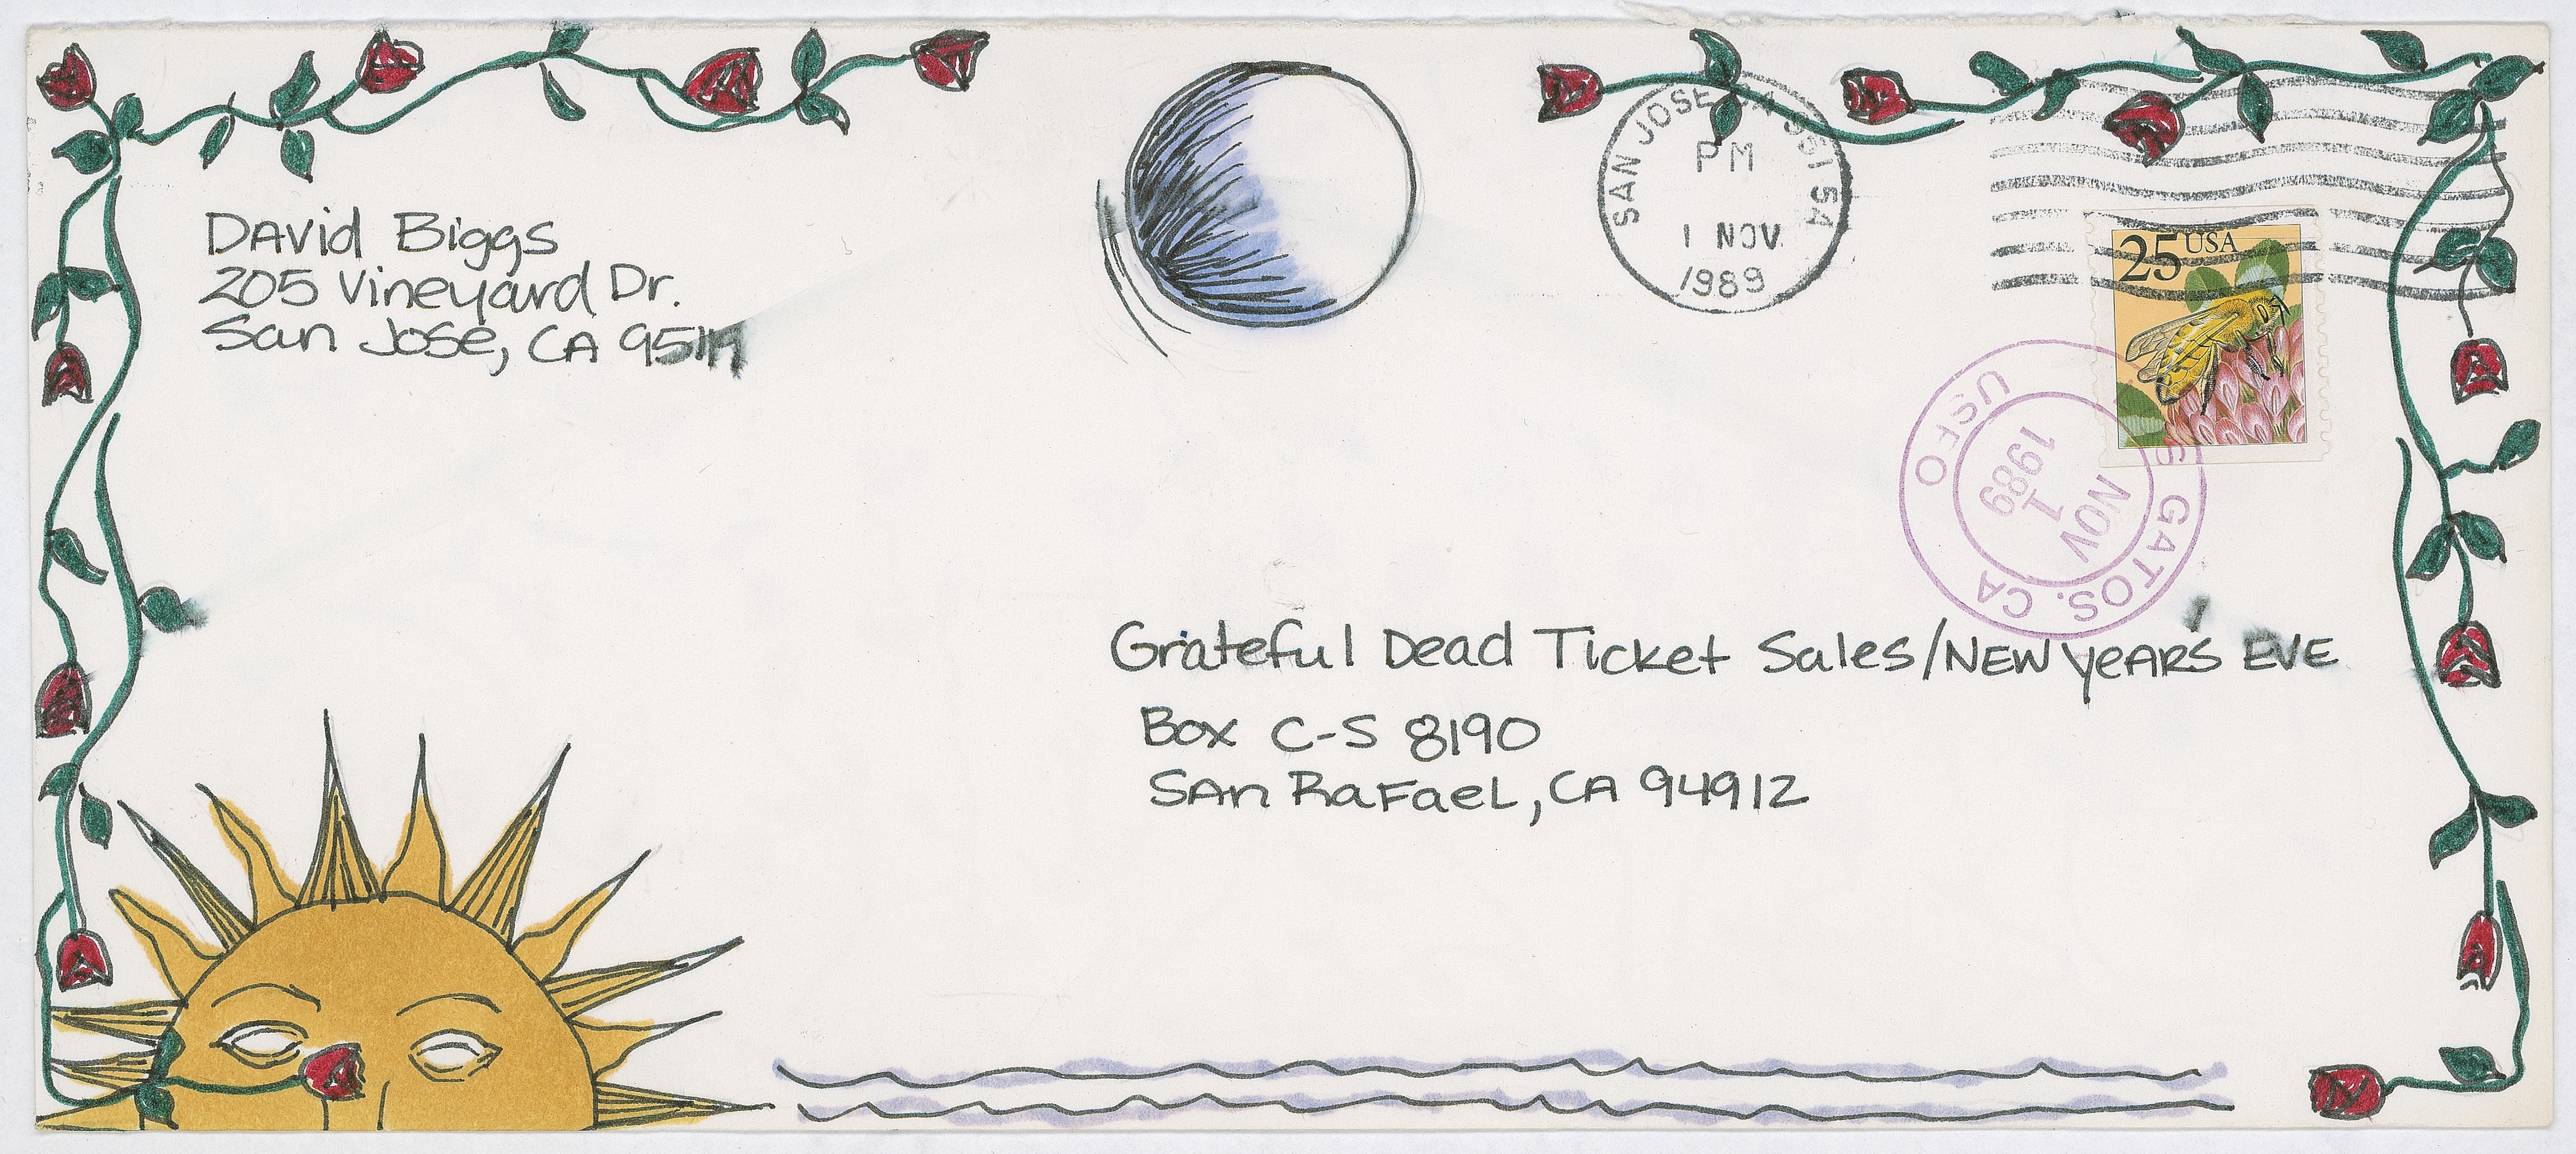 David Biggs
205 Vineyard Dr.
San Jose, CA
SAN JOSE CA 951 54
PM
1 NOV
1989
25 USA
USPO
GATOS. CA
NOV
1
1989
Grateful Dead Ticket Sales/NEW YEAR'S EVE
Box C-S 8190
San Rafael, CA 94912